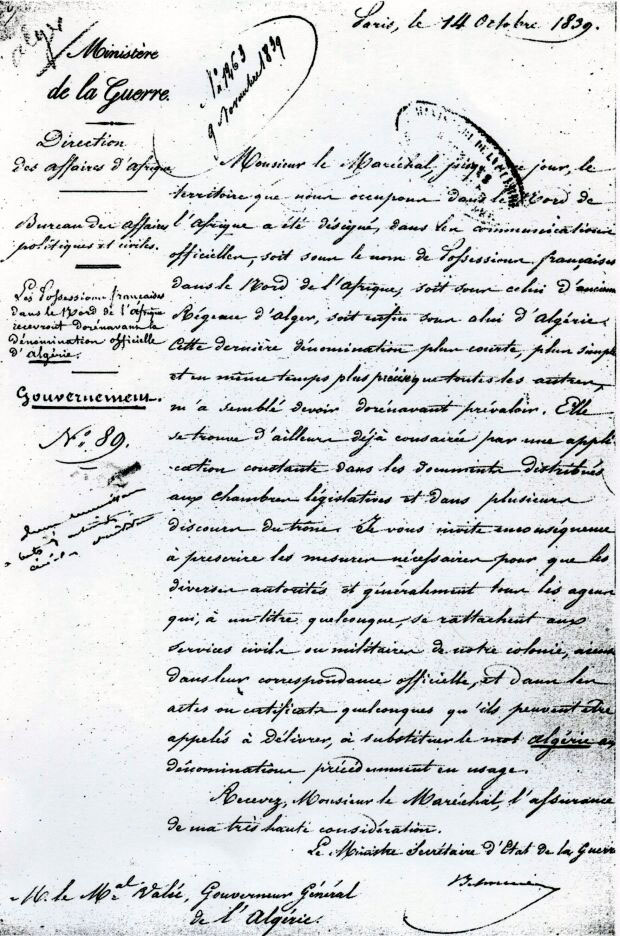 Paris, le 14 Octobre 1839.
alger
Ministère
de la Guerre.
Nº 1263
9 Novembre 1839
Direction
des affaires d'Afrique
Bureau des affaires
politiques et civiles.
Les Possessions françaises
dans le Nord de l'Afrique
recevront dorénavant la
dénomination officielle
d'Algérie.
Gouvernement.
Nº 89.
MINISTÈRE DE L'INTÉRIEUR
Monsieur le Maréchal, jusqu'à ce jour, le
territoire que nous occupons dans le Nord de
l'Afrique a été désigné, dans les communications
officielles, soit sous le nom de Possessions françaises
dans le Nord de l'Afrique, soit sous celui d'ancienne
Régence d'Alger, soit enfin sous celui d'Algérie.
Cette dernière dénomination plus courte, plus simple
et en même temps plus précise que toutes les autres,
m'a semblé devoir dorénavant prévaloir. Elle
se trouve d'ailleurs déjà consacrée par une appli-
cation constante dans les documents distribués
aux chambres législatives et dans plusieurs
discours du trône. Je vous invite en conséquence
à prescrire les mesures nécessaires pour que les
diverses autorités et généralement tous les agens
qui, à un titre quelconque, se rattachent aux
services civils ou militaires de notre colonie, aient
dans leur correspondance officielle, et dans les
actes ou certificats quelconques qu'ils peuvent être
appelés à délivrer, à substituer le mot algérie aux
dénominations précédemment en usage.
Recevez, Monsieur le Maréchal, l'assurance
de ma très haute considération.
Le Ministre Secrétaire d'Etat de la Guerre
M. le Mal Valée, Gouverneur Général
de l'Algérie.